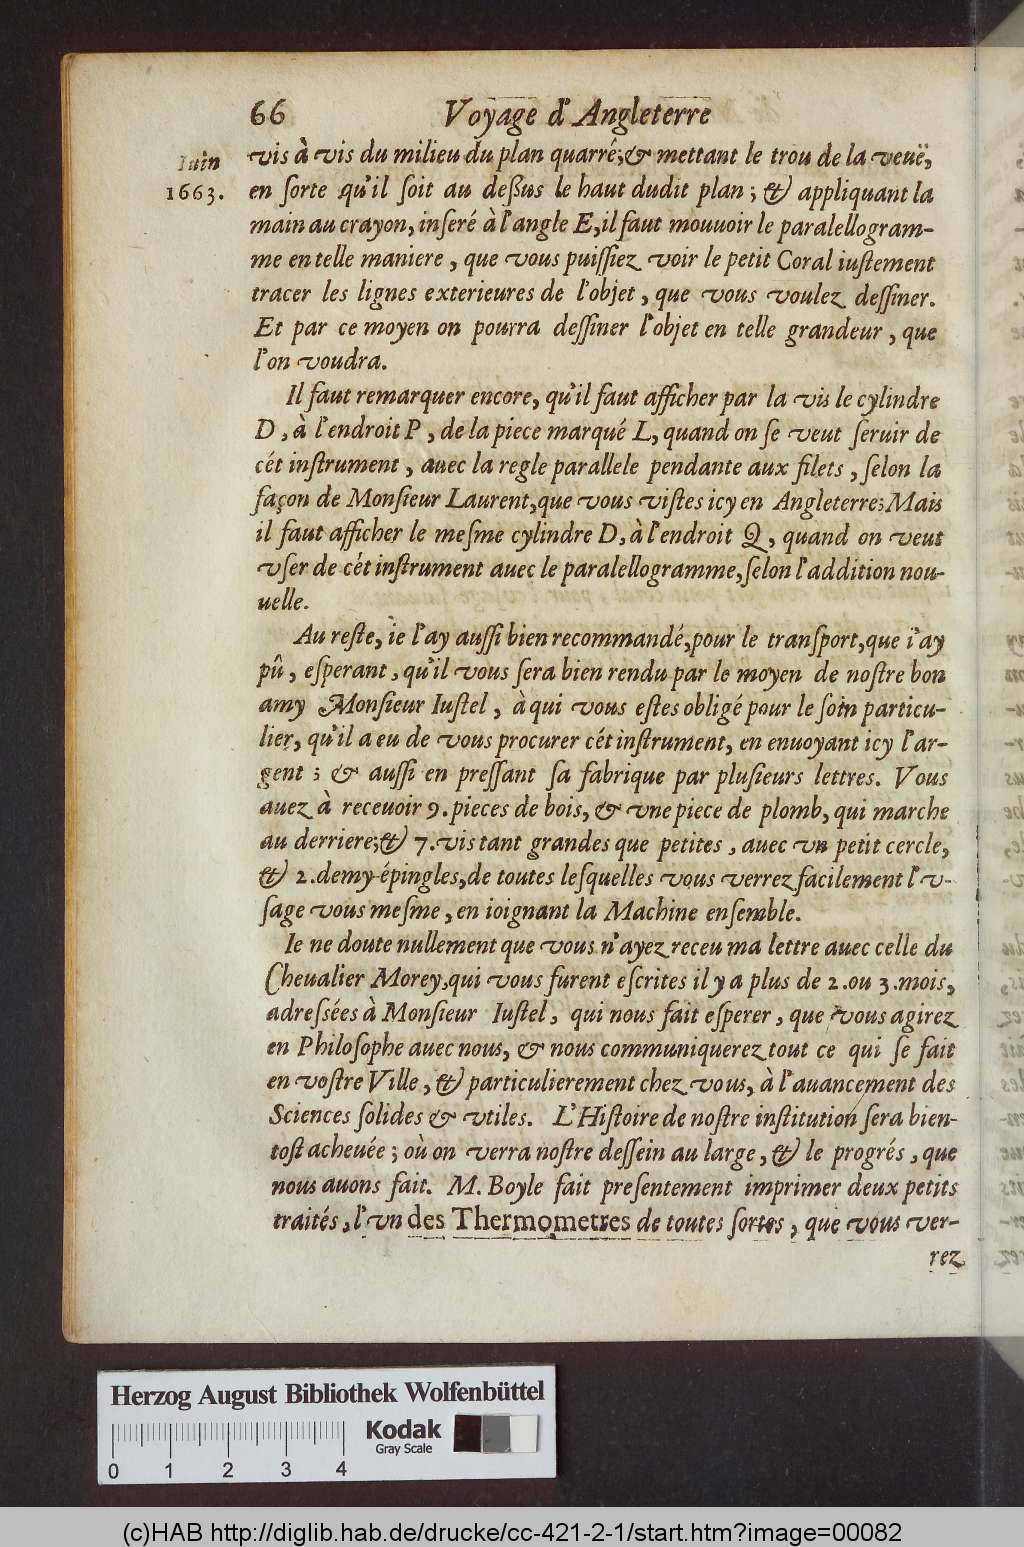 66 Voyage d'Angleterre
Iuin
1663.
vis à vis du milieu du plan quarré; & mettant le trou de la veuë,
en ſorte qu'il ſoit au deßus le haut dudit plan; & appliquant la
main au crayon, inſeré à l'angle E, il faut mouuoir le paralellogram-
me en telle maniere, que vous puiſſiez voir le petit Coral iuſtement
tracer les lignes exterieures de l'objet, que vous voulez deſſiner.
Et par ce moyen on pourra deſſiner l'objet en telle grandeur, que
l'on voudra.
Il faut remarquer encore, qu'il faut afficher par la vis le cylindre
D, à l'endroit P, de la piece marqué L, quand on ſe veut ſeruir de
cét inſtrument, auec la regle parallele pendante aux filets, ſelon la
façon de Monſieur Laurent, que vous viſtes icy en Angleterre; Mais
il faut afficher le meſme cylindre D, à l'endroit Q, quand on veut
vſer de cét inſtrument auec le paralellogramme, ſelon l'addition nou-
uelle.
Au reſte, ie l'ay auſſi bien recommandé, pour le tranſport, que i'ay
pû, eſperant, qu'il vous ſera bien rendu par le moyen de noſtre bon
amy Monſieur Iuſtel, à qui vous eſtes obligé pour le ſoin particu-
lier, qu'il a eu de vous procurer cét inſtrument, en enuoyant icy l'ar-
gent; & auſſi en preſſant ſa fabrique par pluſieurs lettres. Vous
auez à receuoir 9. pieces de bois, & vne piece de plomb, qui marche
au derriere; & 7. vis tant grandes que petites, auec vn petit cercle,
& 2. demy-épingles, de toutes leſquelles vous verrez facilement l'v-
ſage vous meſme, en ioignant la Machine enſemble.
Ie ne doute nullement que vous n'ayez receu ma lettre auec celle du
Cheualier Morey, qui vous furent eſcrites il y a plus de 2. ou 3. mois,
adreſſées à Monſieur Iuſtel, qui nous fait eſperer, que vous agirez
en Philoſophe auec nous, & nous communiquerez tout ce qui ſe fait
en voſtre Ville, & particulierement chez vous, à l'auancement des
Sciences ſolides & vtiles. L'Hiſtoire de noſtre inſtitution ſera bien-
toſt acheuée; où on verra noſtre deſſein au large, & le progrés, que
nous auons fait. M. Boyle fait preſentement imprimer deux petits
traités, l'vn des Thermometres de toutes ſortes, que vous ver-
rez
Herzog August Bibliothek Wolfenbüttel
Kodak
Gray Scale
0 1 2 3 4
(c)HAB http://diglib.hab.de/drucke/cc-421-2-1/start.htm?image=00082